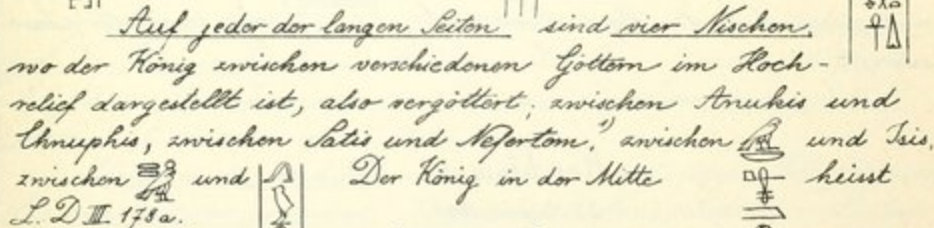 Auf jeder der langen Seiten sind vier Nischen,
wo der König zwischen verschiedenen Göttern im Hoch-
relief dargestellt ist, also vergöttert; zwischen Anukis und
Chnuphis, zwischen Satis und Nefertom,¹⁾ zwischen und Isis,
zwischen und Der König in der Mitte heisst
L. D III 178a.